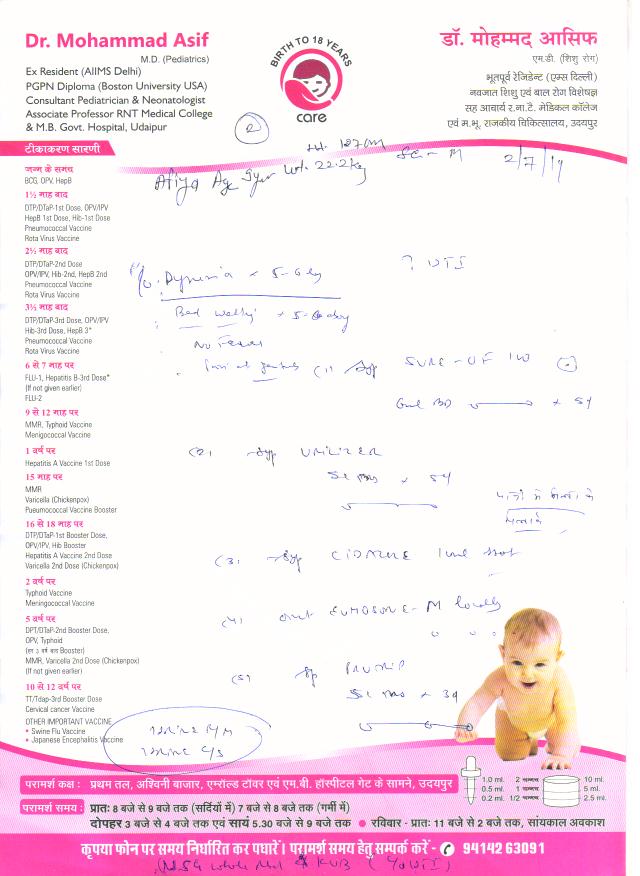 Dr. Mohammad Asif
M.D. (Pediatrics)
Ex Resident (AIIMS Delhi)
PGPN Diploma (Boston University USA)
Consultant Pediatrician & Neonatologist
Associate Professor RNT Medical College
& M.B. Govt. Hospital, Udaipur
BIRTH TO 18 YEARS
care
डॉ. मोहम्मद आसिफ
एम.डी. (शिशु रोग)
भूतपूर्व रेजिडेन्ट (एम्स दिल्ली)
नवजात शिशु एवं बाल रोग विशेषज्ञ
सह आचार्य र.ना.टै. मेडिकल कॉलेज
एवं म.भू. राजकीय चिकित्सालय, उदयपुर
2
Ht. 127cm
टीकाकरण सारणी
2/7/19
Afiya Age 9yr Wt. 22.2kg
जन्म के समय
BCG, OPV, HepB
1½ माह बाद
DTP/DTaP-1st Dose, OPV/IPV
HepB 1st Dose, Hib-1st Dose
Pneumococcal Vaccine
Rota Virus Vaccine
2½ माह बाद
DTP/DTaP-2nd Dose
OPV/IPV, Hib-2nd, HepB 2nd
Pneumococcal Vaccine
Rota Virus Vaccine
? UTI
Dysuria × 5-6
3½ माह बाद
DTP/DTaP-3rd Dose, OPV/IPV
Hib-3rd Dose, HepB 3*
Pneumococcal Vaccine
Rota Virus Vaccine
Bed × 5-6 day
No Fever
6 से 7 माह पर
FLU-1, Hepatitis B-3rd Dose*
(If not given earlier)
FLU-2
(1) Syp
BD
9 से 12 माह पर
MMR, Typhoid Vaccine
Menigococcal Vaccine
1 वर्ष पर
Hepatitis A Vaccine 1st Dose
(2) Syp
15 माह पर
MMR
Varicella (Chickenpox)
Pueumococcal Vaccine Booster
16 से 18 माह पर
DTP/DTaP-1st Booster Dose,
OPV/IPV, Hib Booster
Hepatitis A Vaccine 2nd Dose
Varicella 2nd Dose (Chickenpox)
(3) Syp
2 वर्ष पर
Typhoid Vaccine
Meningococcal Vaccine
(4) oint EUMOSONE-M locally
5 वर्ष पर
DPT/DTaP-2nd Booster Dose,
OPV, Typhoid
(हर 3 वर्ष बाद Booster)
MMR, Varicella 2nd Dose (Chickenpox)
(If not given earlier)
(5)
10 से 12 वर्ष पर
TT/Tdap-3rd Booster Dose
Cervical cancer Vaccine
OTHER IMPORTANT VACCINE
* Swine Flu Vaccine
* Japanese Encephalitis Vaccine
Urine R/M
Urine C/S
परामर्श कक्ष : प्रथम तल, अश्विनी बाजार, एम्रॉल्ड टॉवर एवं एम.बी. हॉस्पीटल गेट के सामने, उदयपुर
परामर्श समय : प्रातः 8 बजे से 9 बजे तक (सर्दियों में) 7 बजे से 8 बजे तक (गर्मी में)
दोपहर 3 बजे से 4 बजे तक एवं सायं 5.30 बजे से 9 बजे तक • रविवार - प्रातः 11 बजे से 2 बजे तक, सांयकाल अवकाश
1.0 ml. 2 चम्मच 10 ml.
0.5 ml. 1 चम्मच 5 ml.
0.2 ml. 1/2 चम्मच 2.5 ml.
कृपया फोन पर समय निर्धारित कर पधारें। परामर्श समय हेतु सम्पर्क करें- 94142 63091